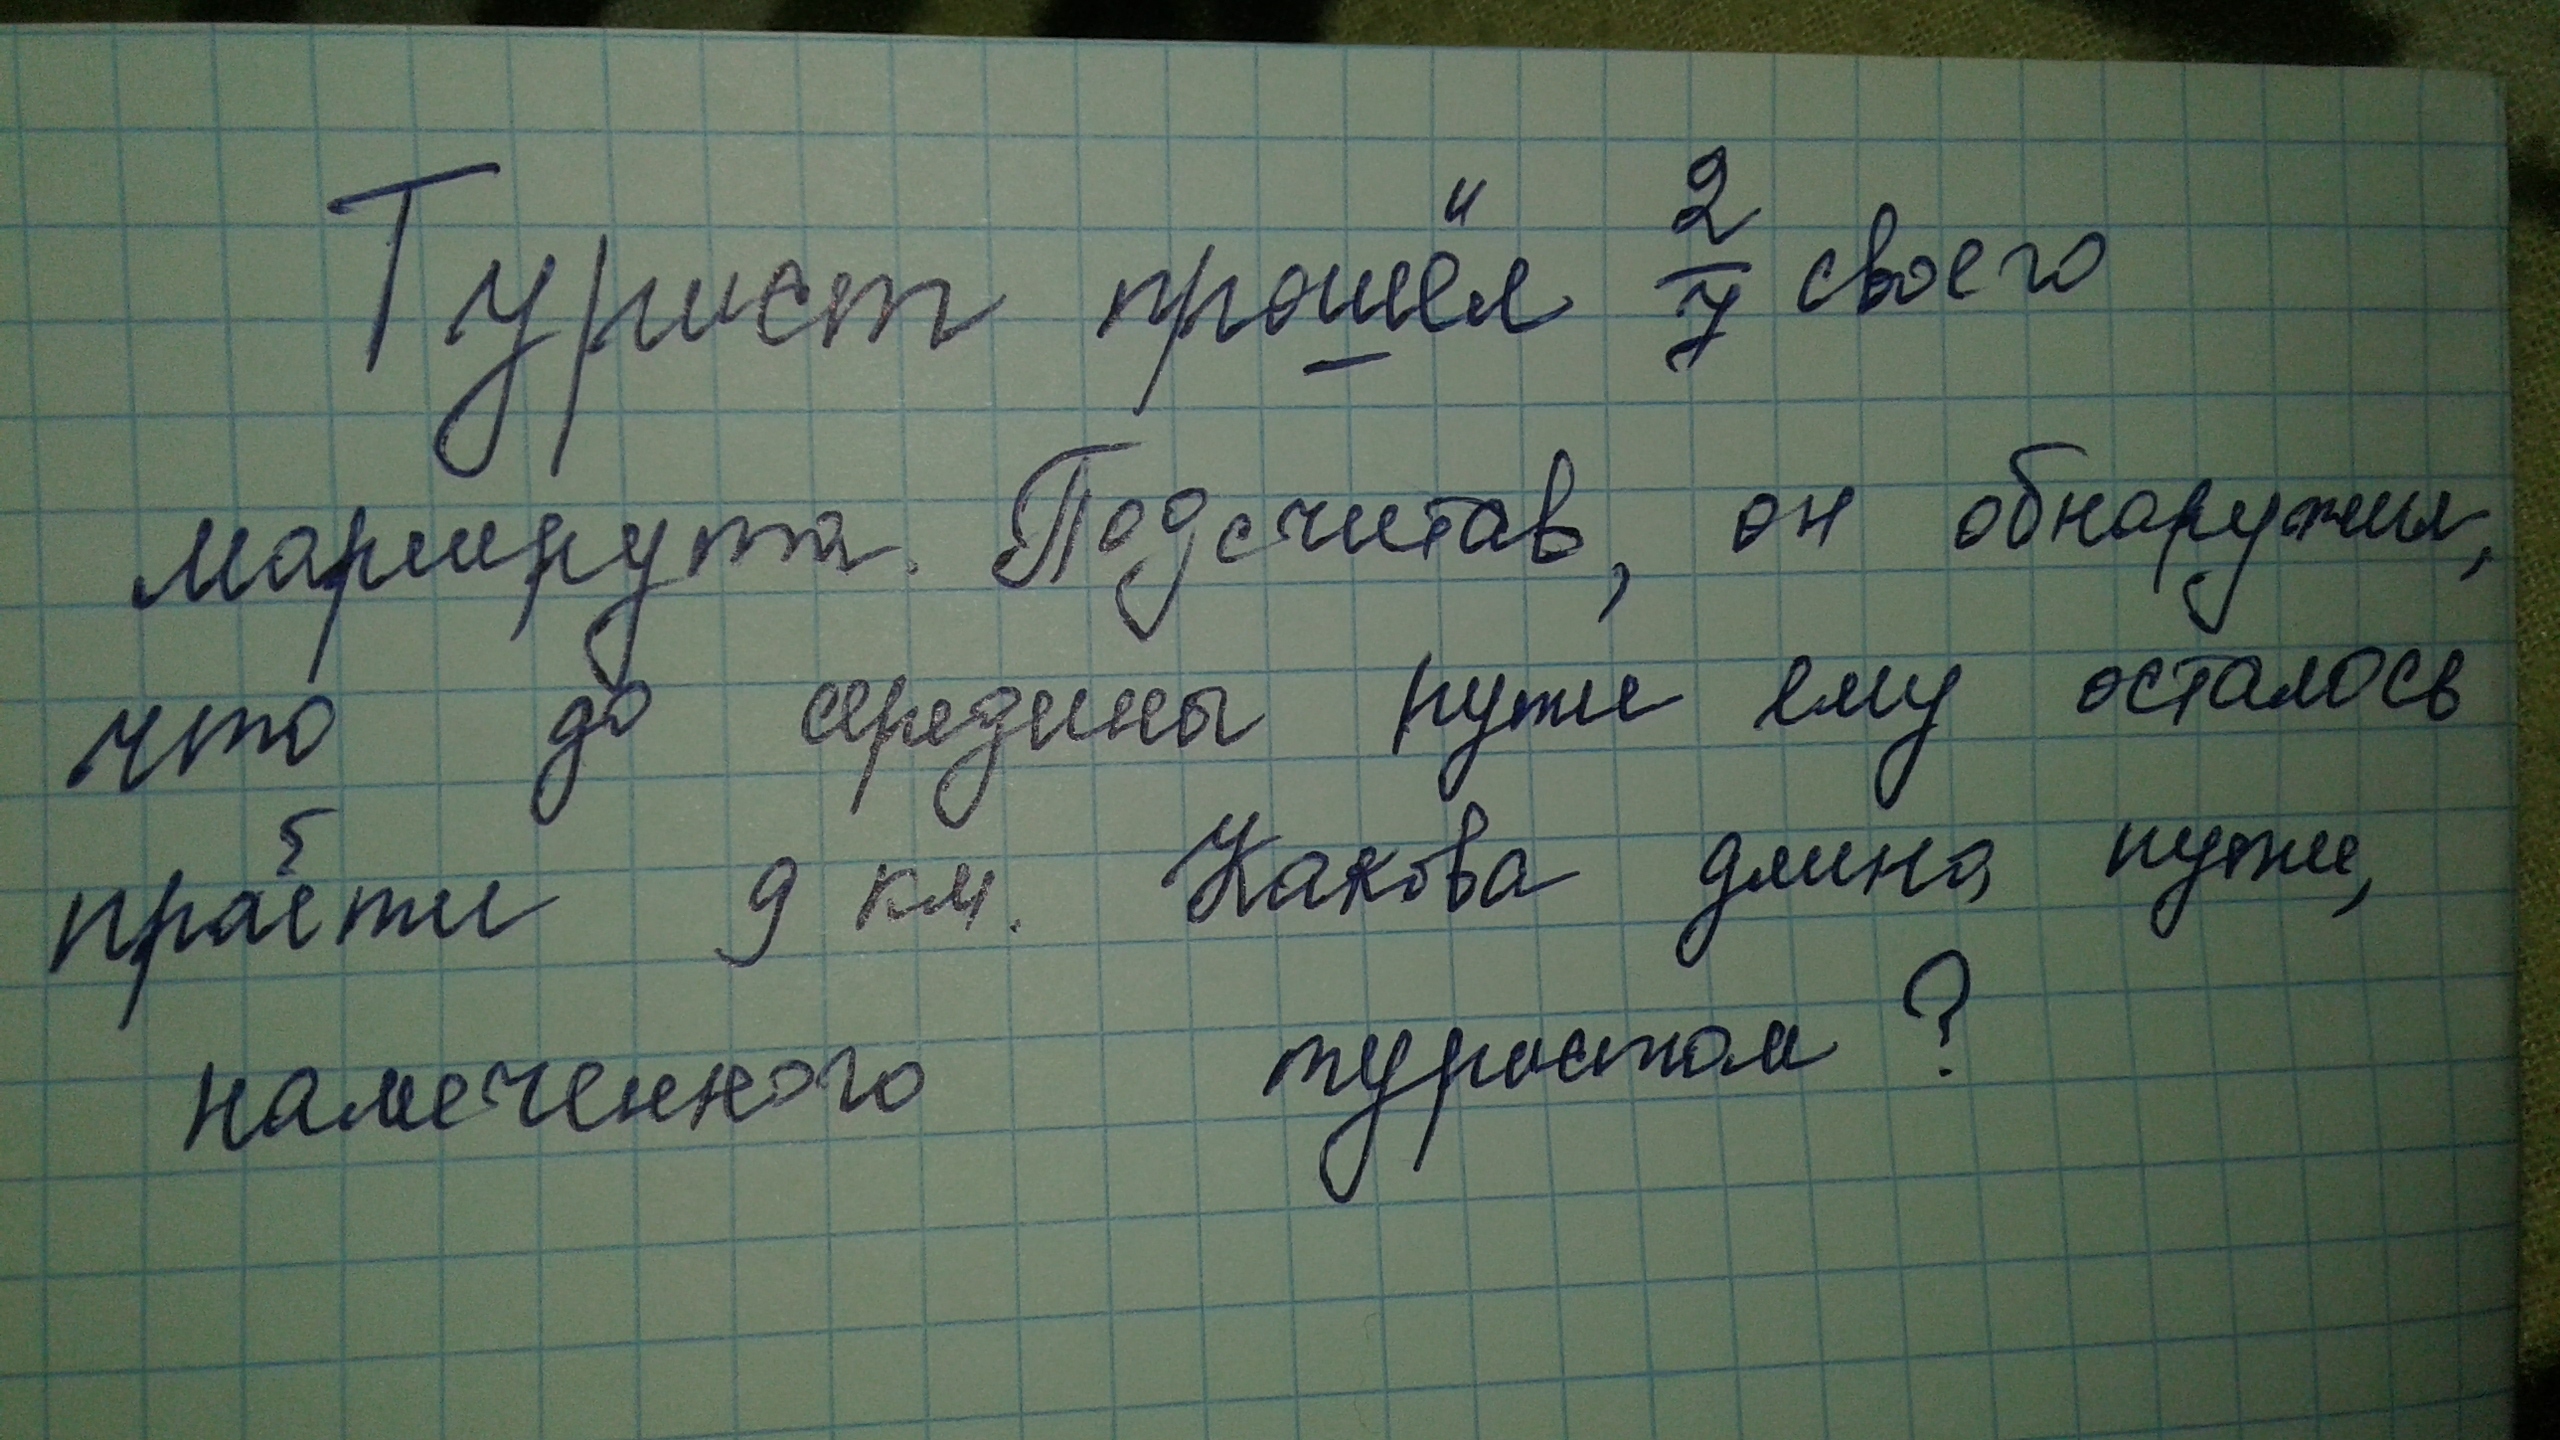 Турист прошёл 2/7 своего
маршрута. Подсчитав, он обнаружил,
что до середины пути ему осталось
пройти 9 км. Какова длина пути,
намеченного туристом?